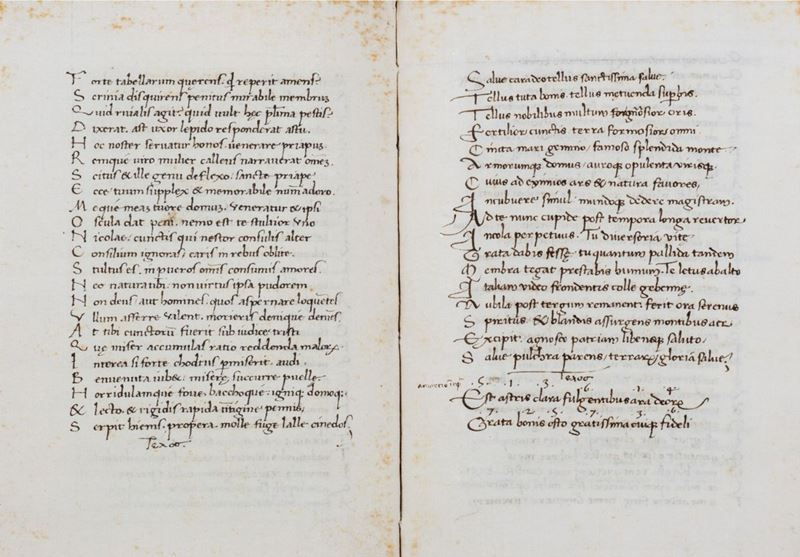 Forte tabellarum querens. qd reperit amens?
Scrinia disquirens penitus mirabile membrum
Quid rivialis agit? quid vult hec plima pestis?
Dixerat. ast uxor lepido responderat astu.
Hoc noster servatur honos. venerare priapum.
Remque viro mulier callens narraverat omem.
Scitus & ille genu deflexo. sancte priape
Ecce tuum supplex & memorabile numen adoro.
Meque meas tuore domus. veneratur & ipsi
Oscula dat peni. nemo est te stultior uno
Nicolae. cunctis qui nestor consulis alter
Consilium ignoras. caris in rebus oblite.
Stultus es. in pueros omnis consumis amores.
Nec natura tibi. non virtus ipsa pudorem
Non deus aut homines. quos aspernare loquentes
Ullum afferre valent. morieris denique demens.
At tibi cunctorum fuerit sub iudice tristi
Que miser accumulas ratio reddenda malorum
Interea si forte chodrus promiserit. audi.
Benvenuta iube. misere succurre puelle.
Horridulamque fove. bacchoque. ignique domoque.
& lecto. & rigidis rapida uringine pennis.
Serpit hiems. propera. molle fuge Lalle cinedos.
Τελος.
Salve cara deo tellus sanctissima salve.
Tellus tuta bonis. tellus metuenda superbis.
Tellus nobilibus multum generosior oris.
Fertilior cunctis terra formosior omni.
Cincta mari gemino. famoso splendida monte
Armorumque domus. auroque opulenta virisque.
Cuius ad eximios ars & natura favores
Incubuere simul. mundoque dedere magistram.
Ad te nunc cupide post tempora longa revertor
Incola perpetuus. Tu diversoria vite
Grata dabis fesse. tu quantum pallida tandem
Membra tegat prestabis humum. Te letus ab alto
Italiam video frondentis colle gebenne.
Nubila post tergum remanent. ferit ora serenus
Spiritus. & blandis assurgens montibus aer
Excipit. agnosco patriam libensque saluto.
Salve pulchra parens. terrarum gloria salve.
Τελος
5. 1. 3. 6. 1. 4
Est astris clara fulgentibus ara decore
7. 2. 5. 7. 3. 6
Grata bonis osto gratissima cuique fideli